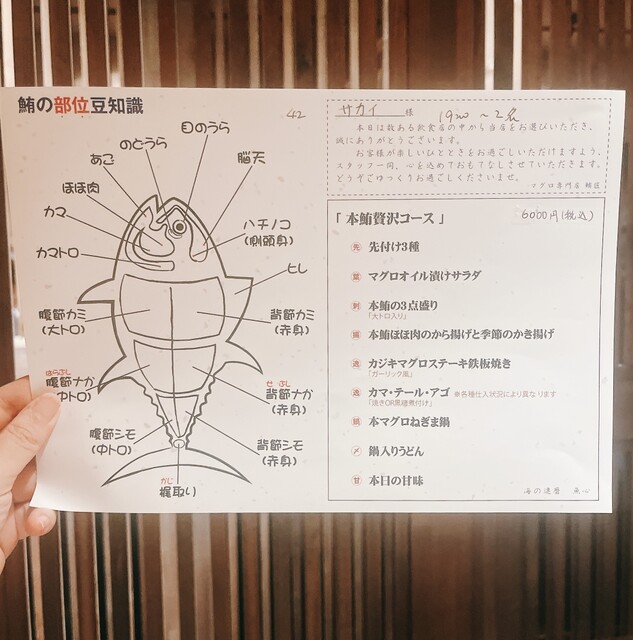 鮪の部位豆知識
42
目のうら
のどうら
あご
脳天
ほほ肉
カマ
ハチノコ
(側頭身)
カマトロ
ヒレ
腹節カミ
(大トロ)
背節カミ
(赤身)
はらぶし
腹節ナカ
(中トロ)
せぶし
背節ナカ
(赤身)
腹節シモ
(中トロ)
背節シモ
(赤身)
かじ
梶取り
サカイ 様 19:00 ～ 2名
本日は数ある飲食店の中から当店をお選びいただき、
誠にありがとうございます。
お客様が楽しいひとときをお過ごしいただけますよう、
スタッフ一同、心を込めておもてなしさせていただきます。
どうぞごゆっくりお過ごしくださいませ。
マグロ専門店
「本鮪贅沢コース」 6000円(税込)
先 先付け3種
菜 マグロオイル漬けサラダ
刺 本鮪の3点盛り
「大トロ入り」
揚 本鮪ほほ肉のから揚げと季節のかき揚げ
カジキマグロステーキ鉄板焼き
「ガーリック風」
カマ・テール・アゴ ※各種仕入状況により異なります
「焼きOR黒糖煮付け」
鍋 本マグロねぎま鍋
〆 鍋入りうどん
甘 本日の甘味
魚心